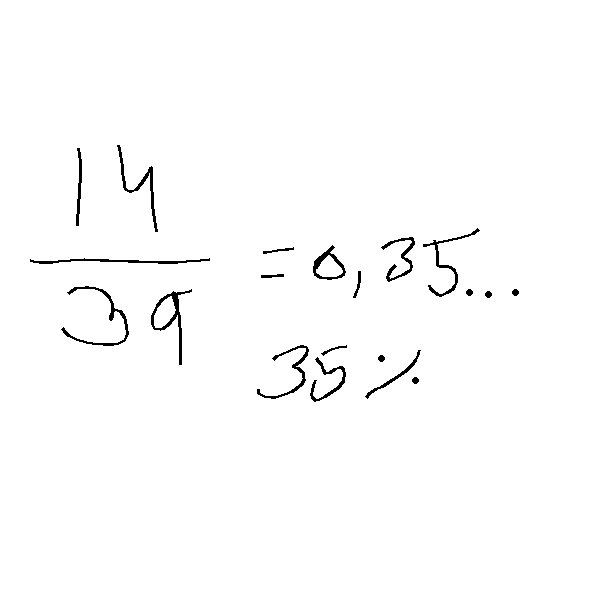 14
39
= 0,35...
35%